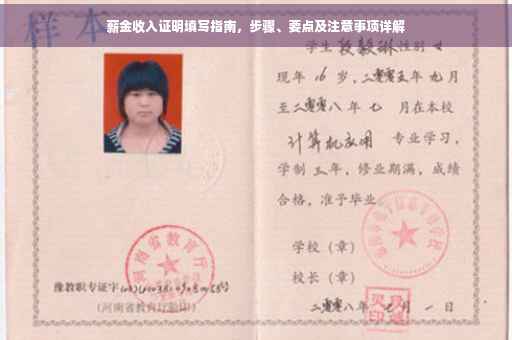 薪金收入证明填写指南，步骤、要点及注意事项详解
样本
学生段毅琳性别女
现年16岁，二零零五年九月
至二零零八年七月在本校
计算机应用专业学习，
学制三年，修业期满，成绩
合格，准予毕业。
学校（章）
校长（章）
二零零八年七月一日
河南省教育厅
豫教职专证字
（河南省教育厅验印）